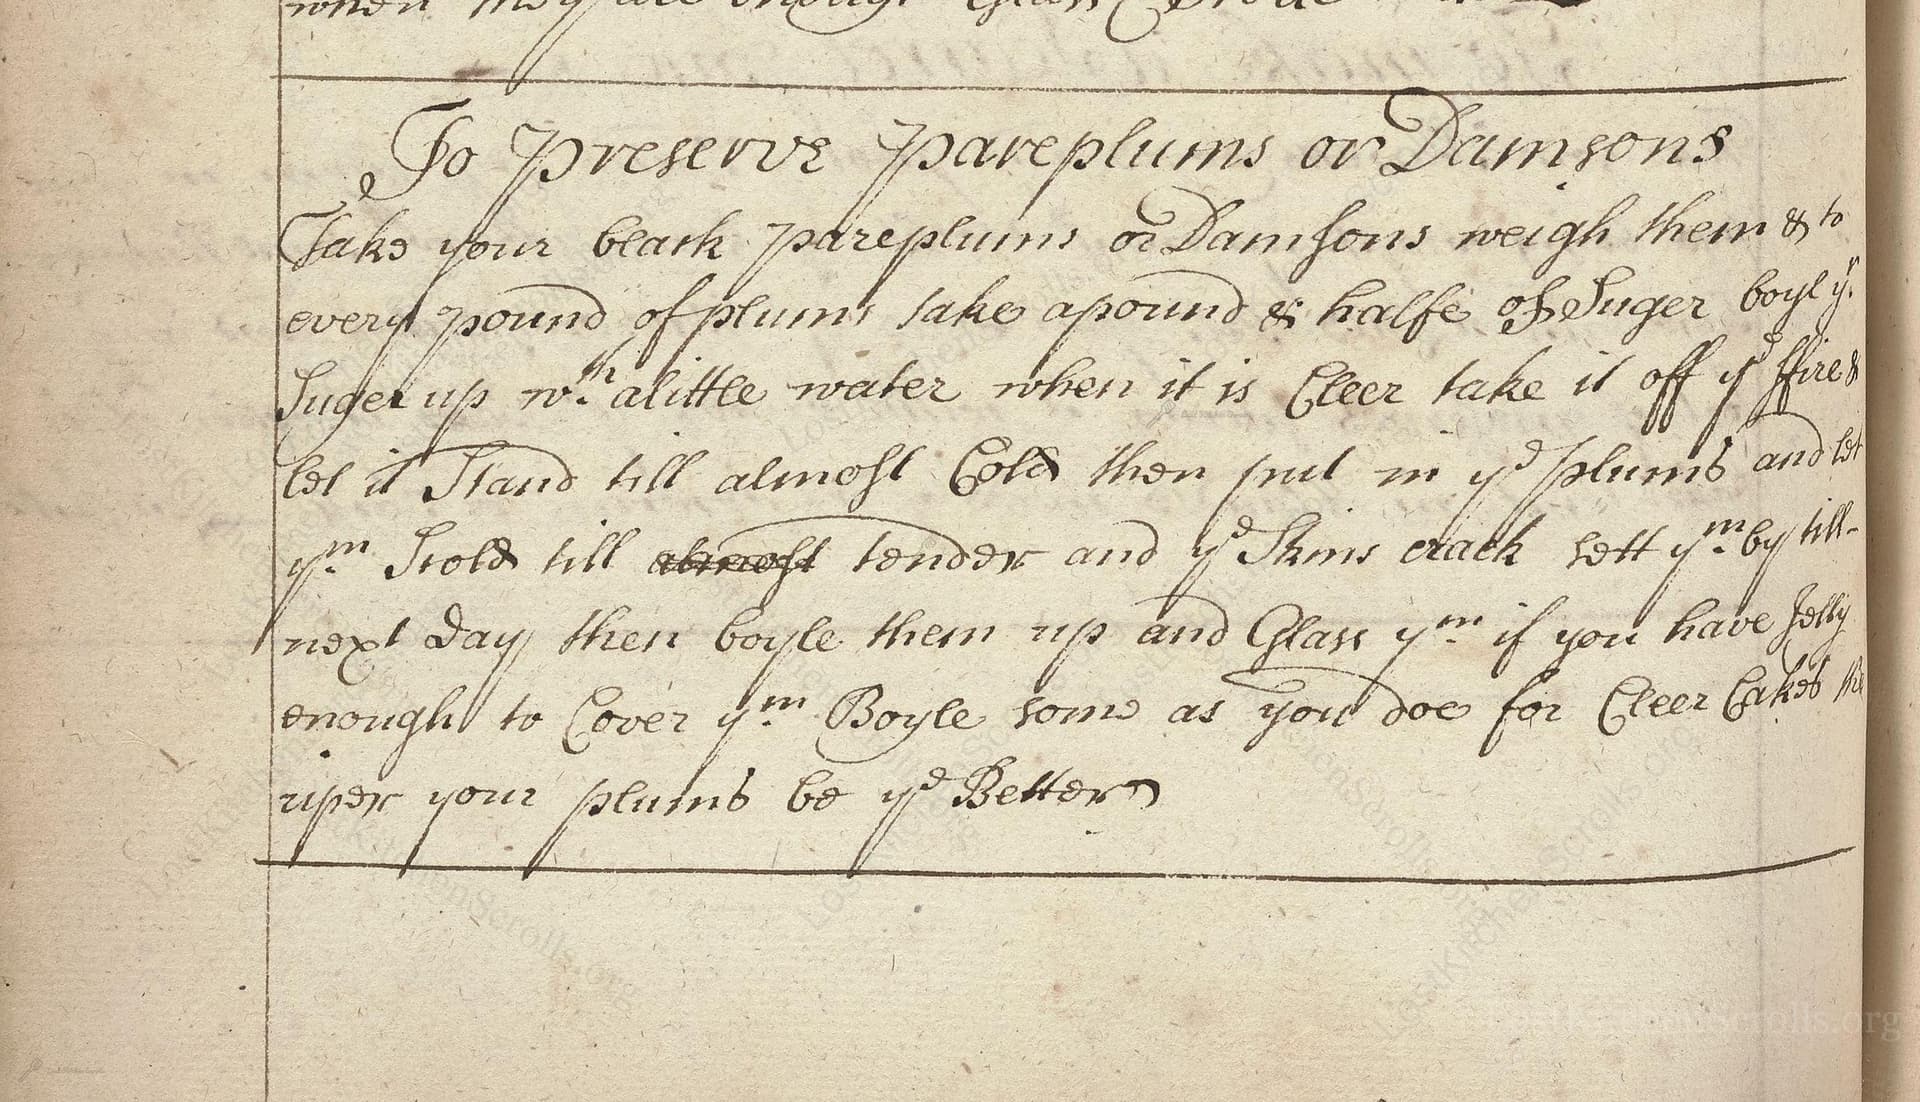 when they are enough Glass
To Preserve Pareplums or Damsons
Take your black pareplums or Damsons weigh them & to
every pound of plums take a pound & halfe of Suger boyl yr
Suger up wth. a little water when it is Cleer take it off ye ffire &
let it Stand till almost Cold then put in ye plums and let
ym. Scold till almost tender and ye Skins crack sett ym. by till-
next day then boyle them up and Glass ym. if you have Jelly
enough to Cover ym. Boyle some as you doe for Cleer Cakes the
riper your plums be ye Better
LostKitchenScrolls.org